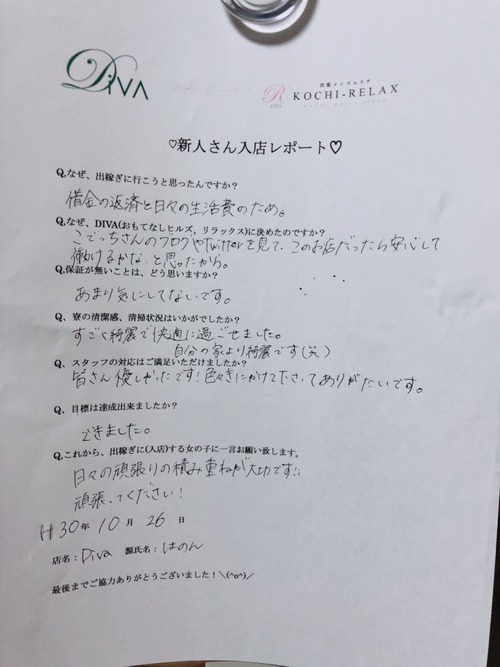 DiVA
R
relax
出張メンズエステ
KOCHI-RELAX
♡新人さん入店レポート♡
Q.なぜ、出稼ぎに行こうと思ったんですか?
借金の返済と日々の生活費のため。
Q.なぜ、DIVA(おもてなしヒルズ, リラックス)に決めたのですか?
こでっちさんのブログやtwitterを見て、このお店だったら安心して
働けるかな、と思ったから。
Q.保証が無いことは、どう思いますか?
あまり気にしてないです。
Q、寮の清潔感、清掃状況はいかがでしたか?
すごく綺麗で快適に過ごせました。
自分の家より綺麗です(笑)
Q、スタッフの対応はご満足いただけましたか?
皆さん優しかったです!色々きにかけて下さってありがたいです。
Q、目標は達成出来ましたか?
できました。
Q.これから、出稼ぎに(入店)する女の子に一言お願い致します。
日々の頑張りの積み重ねが大切です!!
頑張ってください!
H30年 10月 26日
店名:Diva 源氏名:はのん
最後までご協力ありがとうございました!\(^o^)/